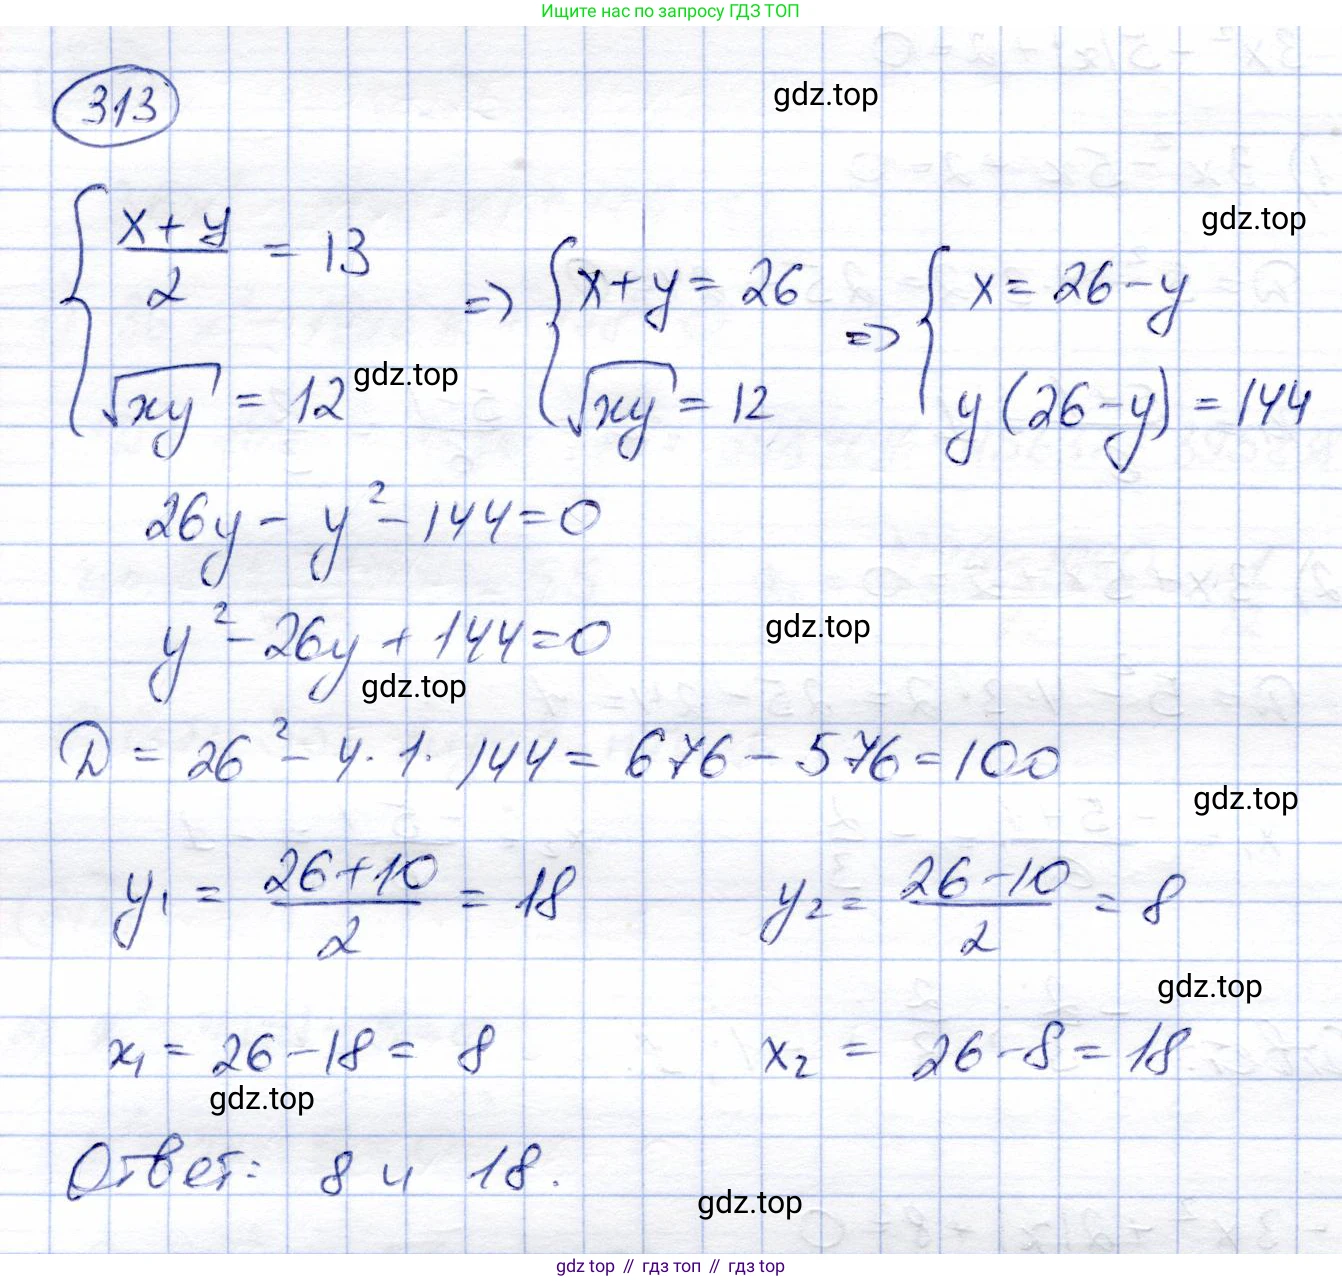 Ищите нас по запросу ГДЗ ТОП
313
gdz.top
gdz.top
{ (x + y)/2 = 13 => { x + y = 26 => { x = 26 - y
√xy = 12 gdz.top √xy = 12 y(26 - y) = 144
26y - y² - 144 = 0
y² - 26y + 144 = 0 gdz.top
gdz.top
D = 26² - 4 · 1 · 144 = 676 - 576 = 100
gdz.top
y₁ = (26 + 10)/2 = 18 y₂ = (26 - 10)/2 = 8
gdz.top
x₁ = 26 - 18 = 8 x₂ = 26 - 8 = 18
gdz.top
Ответ: 8 и 18.
gdz.top
gdz top // гдз топ // гдз top